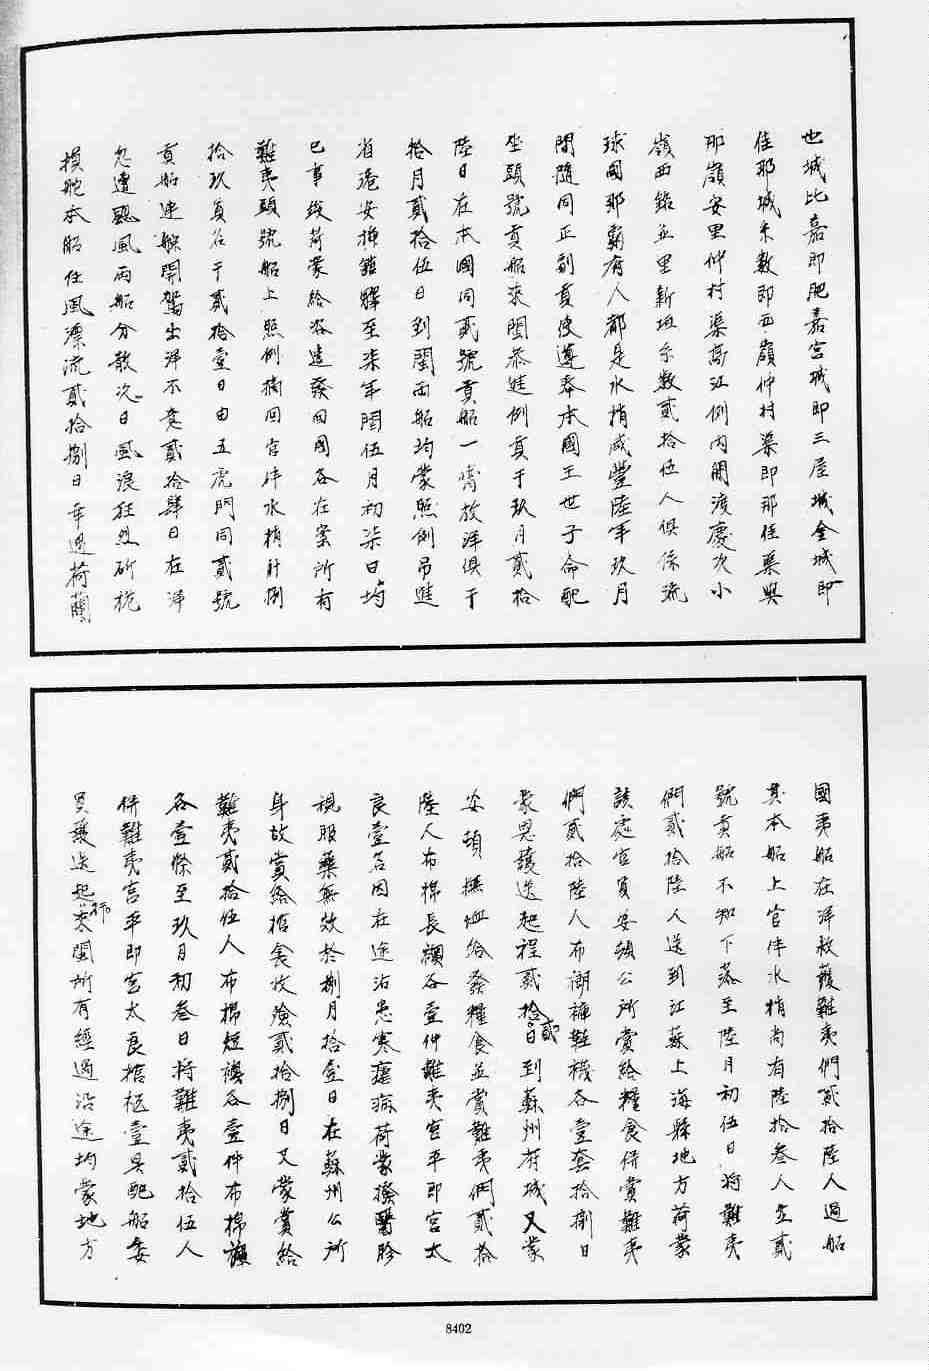 也城比嘉即肥嘉宮城即三屋城金城即
佳耶城系數即西嶺仲村渠即那佳渠與
那嶺安里仲村渠高江例內開渡慶次小
嶺西銘並里新垣系數貳拾伍人俱係琉
球國那霸府人都是水梢咸豐陸年玖月
間隨同正副貢使遵奉本國王世子命配
坐頭號貢船來閩恭進例貢于玖月貳拾
陸日在本國同貳號貢船一齊放洋俱于
拾月貳拾伍日到閩兩船均蒙照例吊進
省港安插館驛至柒年閏伍月初柒日均
已事竣荷蒙給咨遣發回國各在案所有
難夷頭號船上照例摘回官伴水梢計捌
拾玖員名于貳拾壹日由五虎門同貳號
貢船連䑸開駕出洋不意貳拾肆日在洋
忽遭颶風兩船分散次日風浪狂烈斫桅
損舵本船任風漂流貳拾捌日幸遇荷蘭
國夷船在洋救護難夷們貳拾陸人過船
其本船上官伴水梢尚有陸拾叁人並貳
號貢船不知下落至陸月初伍日將難夷
們貳拾陸人送到江蘇上海縣地方荷蒙
該處官員安頓公所賞給糧食併賞難夷
們貳拾陸人布衫褲鞋襪各壹套拾捌日
蒙恩護送起程貳拾貳日到蘇州府城又蒙
安頓撫卹給發糧食並賞難夷們貳拾
陸人布棉長襖各壹件難夷宮平即宮太
良壹名因在途沾患寒瘧病荷蒙撥醫胗
視服藥無效於捌月拾壹日在蘇州公所
身故賞給棺衾收殮貳拾捌日又蒙賞給
難夷貳拾伍人布棉短襖各壹件布棉被
各壹條至玖月初叁日將難夷貳拾伍人
併難夷宮平即宮太良棺柩壹具配船委
員護送起行來閩所有經過沿途均蒙地方
8402